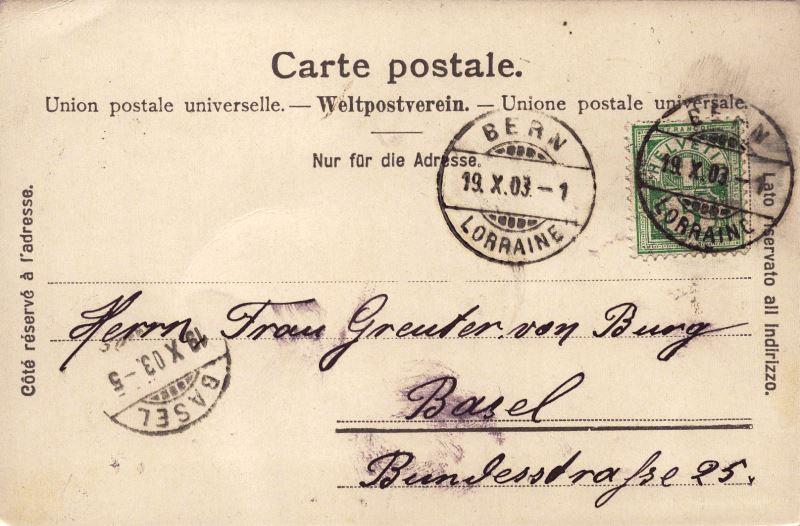 Carte postale.
Union postale universelle. — Weltpostverein. — Unione postale universale.
Nur für die Adresse.
Côté réservé à l'adresse.
Lato riservato all Indirizzo.
BERN
19. X. 03. – 1
LORRAINE
BERN
19. X. 03. – 1
LORRAINE
FRANCO
HELVETIA
Herrn Frau Greuter. von Burg
Basel
Bundesstraße 25.
19. X. 03. – 5
BASEL